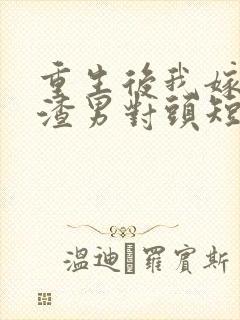 重生後我嫁
渣男對頭短
溫迪羅賓斯